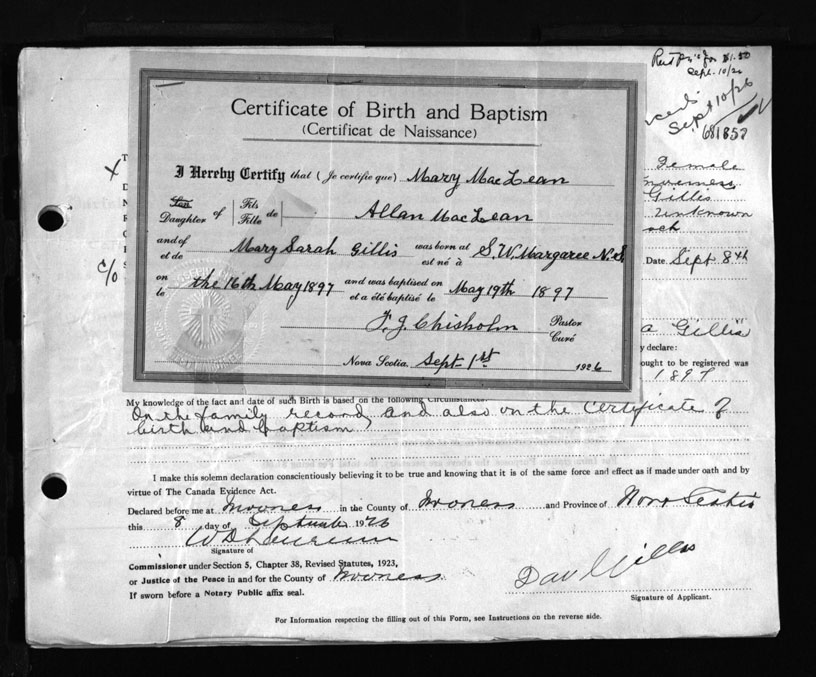 Rec'd for $1.50
Sept. 10/26
Sept 10/26
681857
Certificate of Birth and Baptism
(Certificat de Naissance)
I Hereby Certify that (Je certifie que) Mary MacLean
Son
Daughter of Fils Fille de Allan MacLean
and of et de Mary Sarah Gillis was born at est né à S.W. Margaree N.S
on le the 16th May 1897 and was baptised on et a été baptisé le May 19th 1897
F. J. Chisholm Pastor Curé
Nova Scotia, Sept 1st 1926
X
T
D
N
F
C
S
c/o
Female
Inverness
Gillis
Unknown
Date. Sept 8th
a Gillis
y declare:
ought to be registered was
1897
My knowledge of the fact and date of such Birth is based on the following Circumstances:
On the family record, and also on the Certificate of
birth and baptism
I make this solemn declaration conscientiously believing it to be true and knowing that it is of the same force and effect as if made under oath and by
virtue of The Canada Evidence Act.
Declared before me at Inverness in the County of Inverness and Province of Nova Scotia
this 8 day of September 1926
Signature of
Commissioner under Section 5, Chapter 38, Revised Statutes, 1923,
or Justice of the Peace in and for the County of Inverness
If sworn before a Notary Public affix seal.
Dan Gillis
Signature of Applicant.
For Information respecting the filling out of this Form, see Instructions on the reverse side.